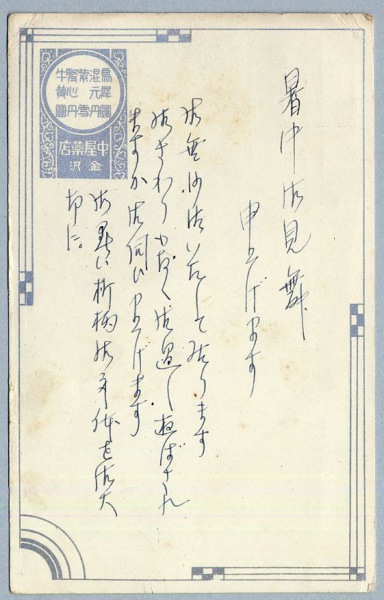 暑中御見舞
申上げます
御無沙汰いたして居ります
御さわりもなく御過し遊ばされ
ますか御伺ひ申上げます
御暑い折柄御身体を御大
切に。
烏犀圓
混元丹
紫雪
牛黄圓
中屋薬店
金沢